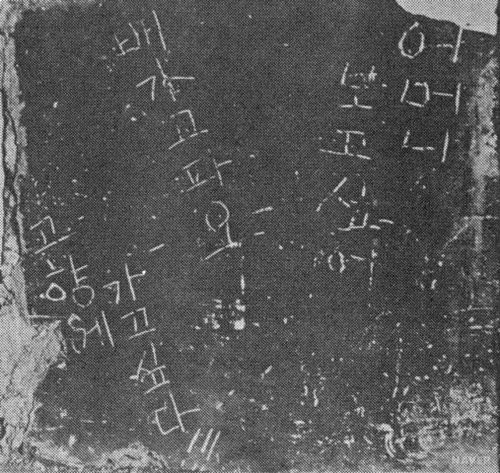 어머니
보고싶어
배가고파요
가고싶다
고향에
NAVER